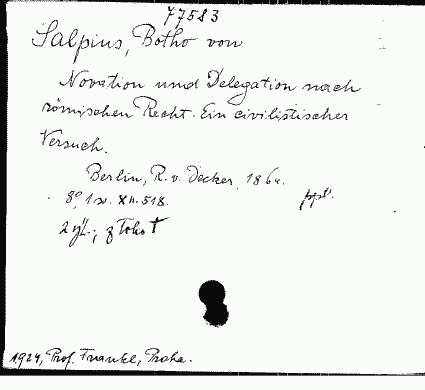 77583
Salpius, Botho von
Novation und Delegation nach
römischen Recht. Ein civilistischer
Versuch.
Berlin, R. v. Decker, 1864.
8° 1 sv. XII. 518.
ppl.
1924, Prof. Frankl, Praha.